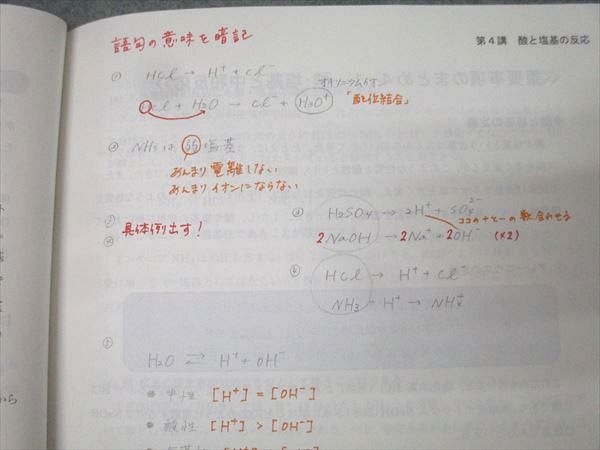 第4講 酸と塩基の反応
語句の意味を暗記
① HCl → H⁺ + Cl⁻
オキソニウムイオン
HCl + H₂O → Cl⁻ + H₃O⁺ 「配位結合」
② NH₃は弱塩基
あんまり電離しない
あんまりイオンにならない
具体例出す!
③ H₂SO₄ → 2H⁺ + SO₄²⁻
ココの+と-の数合わせる
2NaOH → 2Na⁺ + 2OH⁻ (×2)
④ HCl → H⁺ + Cl⁻
NH₃ + H⁺ → NH₄⁺
⑤
H₂O ⇄ H⁺ + OH⁻
● 中性 [H⁺] = [OH⁻]
● 酸性 [H⁺] > [OH⁻]
から